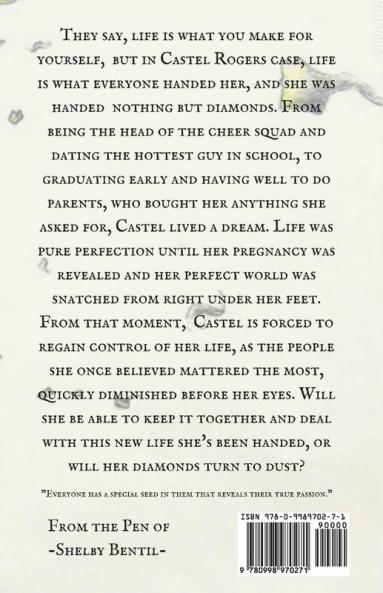 They say, life is what you make for
yourself, but in Castel Rogers case, life
is what everyone handed her, and she was
handed nothing but diamonds. From
being the head of the cheer squad and
dating the hottest guy in school, to
graduating early and having well to do
parents, who bought her anything she
asked for, Castel lived a dream. Life was
pure perfection until her pregnancy was
revealed and her perfect world was
snatched from right under her feet.
From that moment, Castel is forced to
regain control of her life, as the people
she once believed mattered the most,
quickly diminished before her eyes. Will
she be able to keep it together and deal
with this new life she's been handed, or
will her diamonds turn to dust?
"Everyone has a special seed in them that reveals their true passion."
From the Pen of
-Shelby Bentil-
ISBN 978-0-9989702-7-1
90000
9 780998 970271